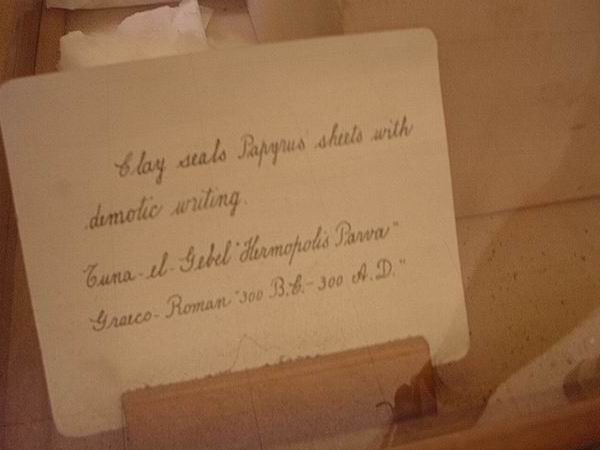 Clay seals Papyrus sheets with
demotic writing.
Tuna-el-Gebel "Hermopolis Parva"
Graeco-Roman "300 B.C.-300 A.D."